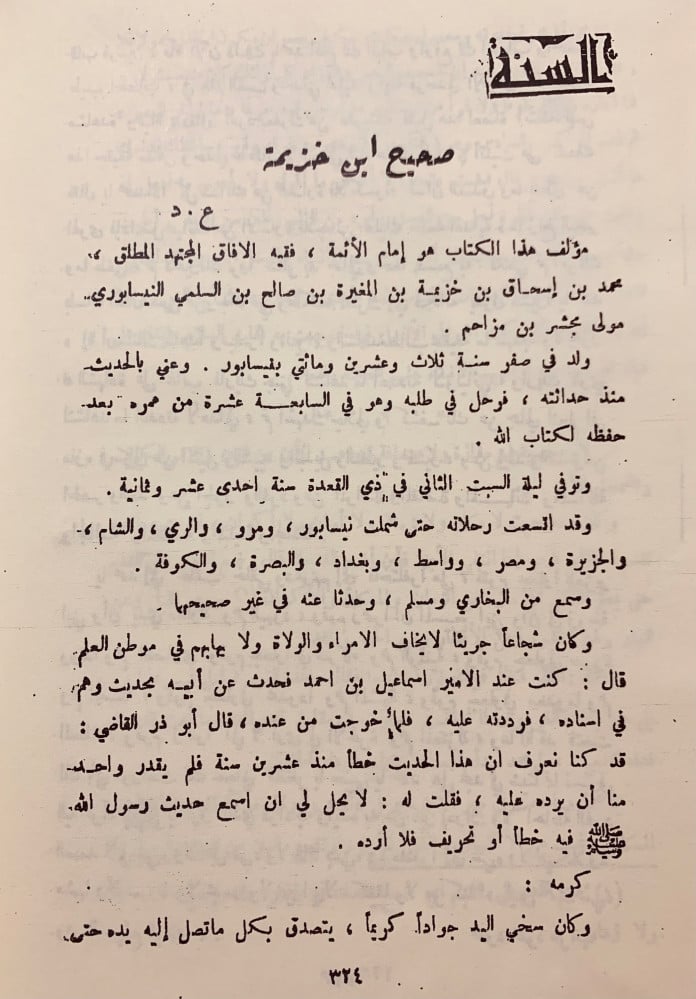 السنة
صحيح ابن خزيمة
ع . د
مؤلف هذا الكتاب هو إمام الأئمة ، فقيه الافاق المجتهد المطلق ،
محمد بن إسحاق بن خزيمة بن المغيرة بن صالح بن السلمي النيسابوري
مولى مجشر بن مزاحم .
ولد في صفر سنة ثلاث وعشرين ومائتي بنيسابور . وعني بالحديث
منذ حداثته ، فرحل في طلبه وهو في السابعة عشرة من عمره بعد
حفظه لكتاب الله .
وتوفي ليلة السبت الثاني في ذي القعدة سنة احدى عشر وثمانية .
وقد اتسعت رحلاته حتى شملت نيسابور ، ومرو ، والري ، والشام ،
والجزيرة ، ومصر ، وواسط ، وبغداد ، والبصرة ، والكوفة .
وسمع من البخاري ومسلم ، وحدثا عنه في غير صحيحهما .
وكان شجاعاً جريئا لايخاف الامراء والولاة ولا يهابهم في موطن العلم
قال : كنت عند الامير اسماعيل بن احمد فحدث عن أبيه بحديث وهم
في اسناده ، فرددته عليه ، فلما خرجت من عنده ، قال أبو ذر القاضي :
قد كنا نعرف ان هذا الحديث خطأ منذ عشرين سنة فلم يقدر واحد
منا أن يرده عليه ، فقلت له : لا يحل لي ان اسمع حديث رسول الله
ﷺ فيه خطأ أو تحريف فلا أرده .
كرمه :
وكان سخي اليد جواداً كريماً ، يتصدق بكل ماتصل إليه يده حتى
٣٢٤